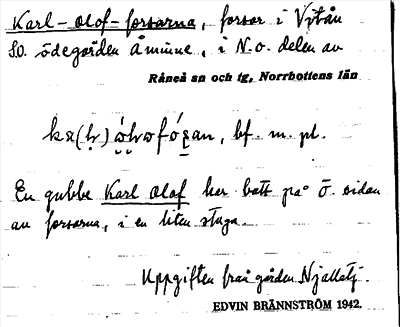 Karl-Olof-forsarna, forsar i Vitån
S.O. ödegården Åminne, i N.o. delen av
Råneå sn och tg, Norrbottens län
bf. m. pl.
En gubbe Karl Olof har bott på Ö. sidan
av forsarna, i en liten stuga.
Uppgiften från gården Njallatj.
EDVIN BRÄNNSTRÖM 1942.